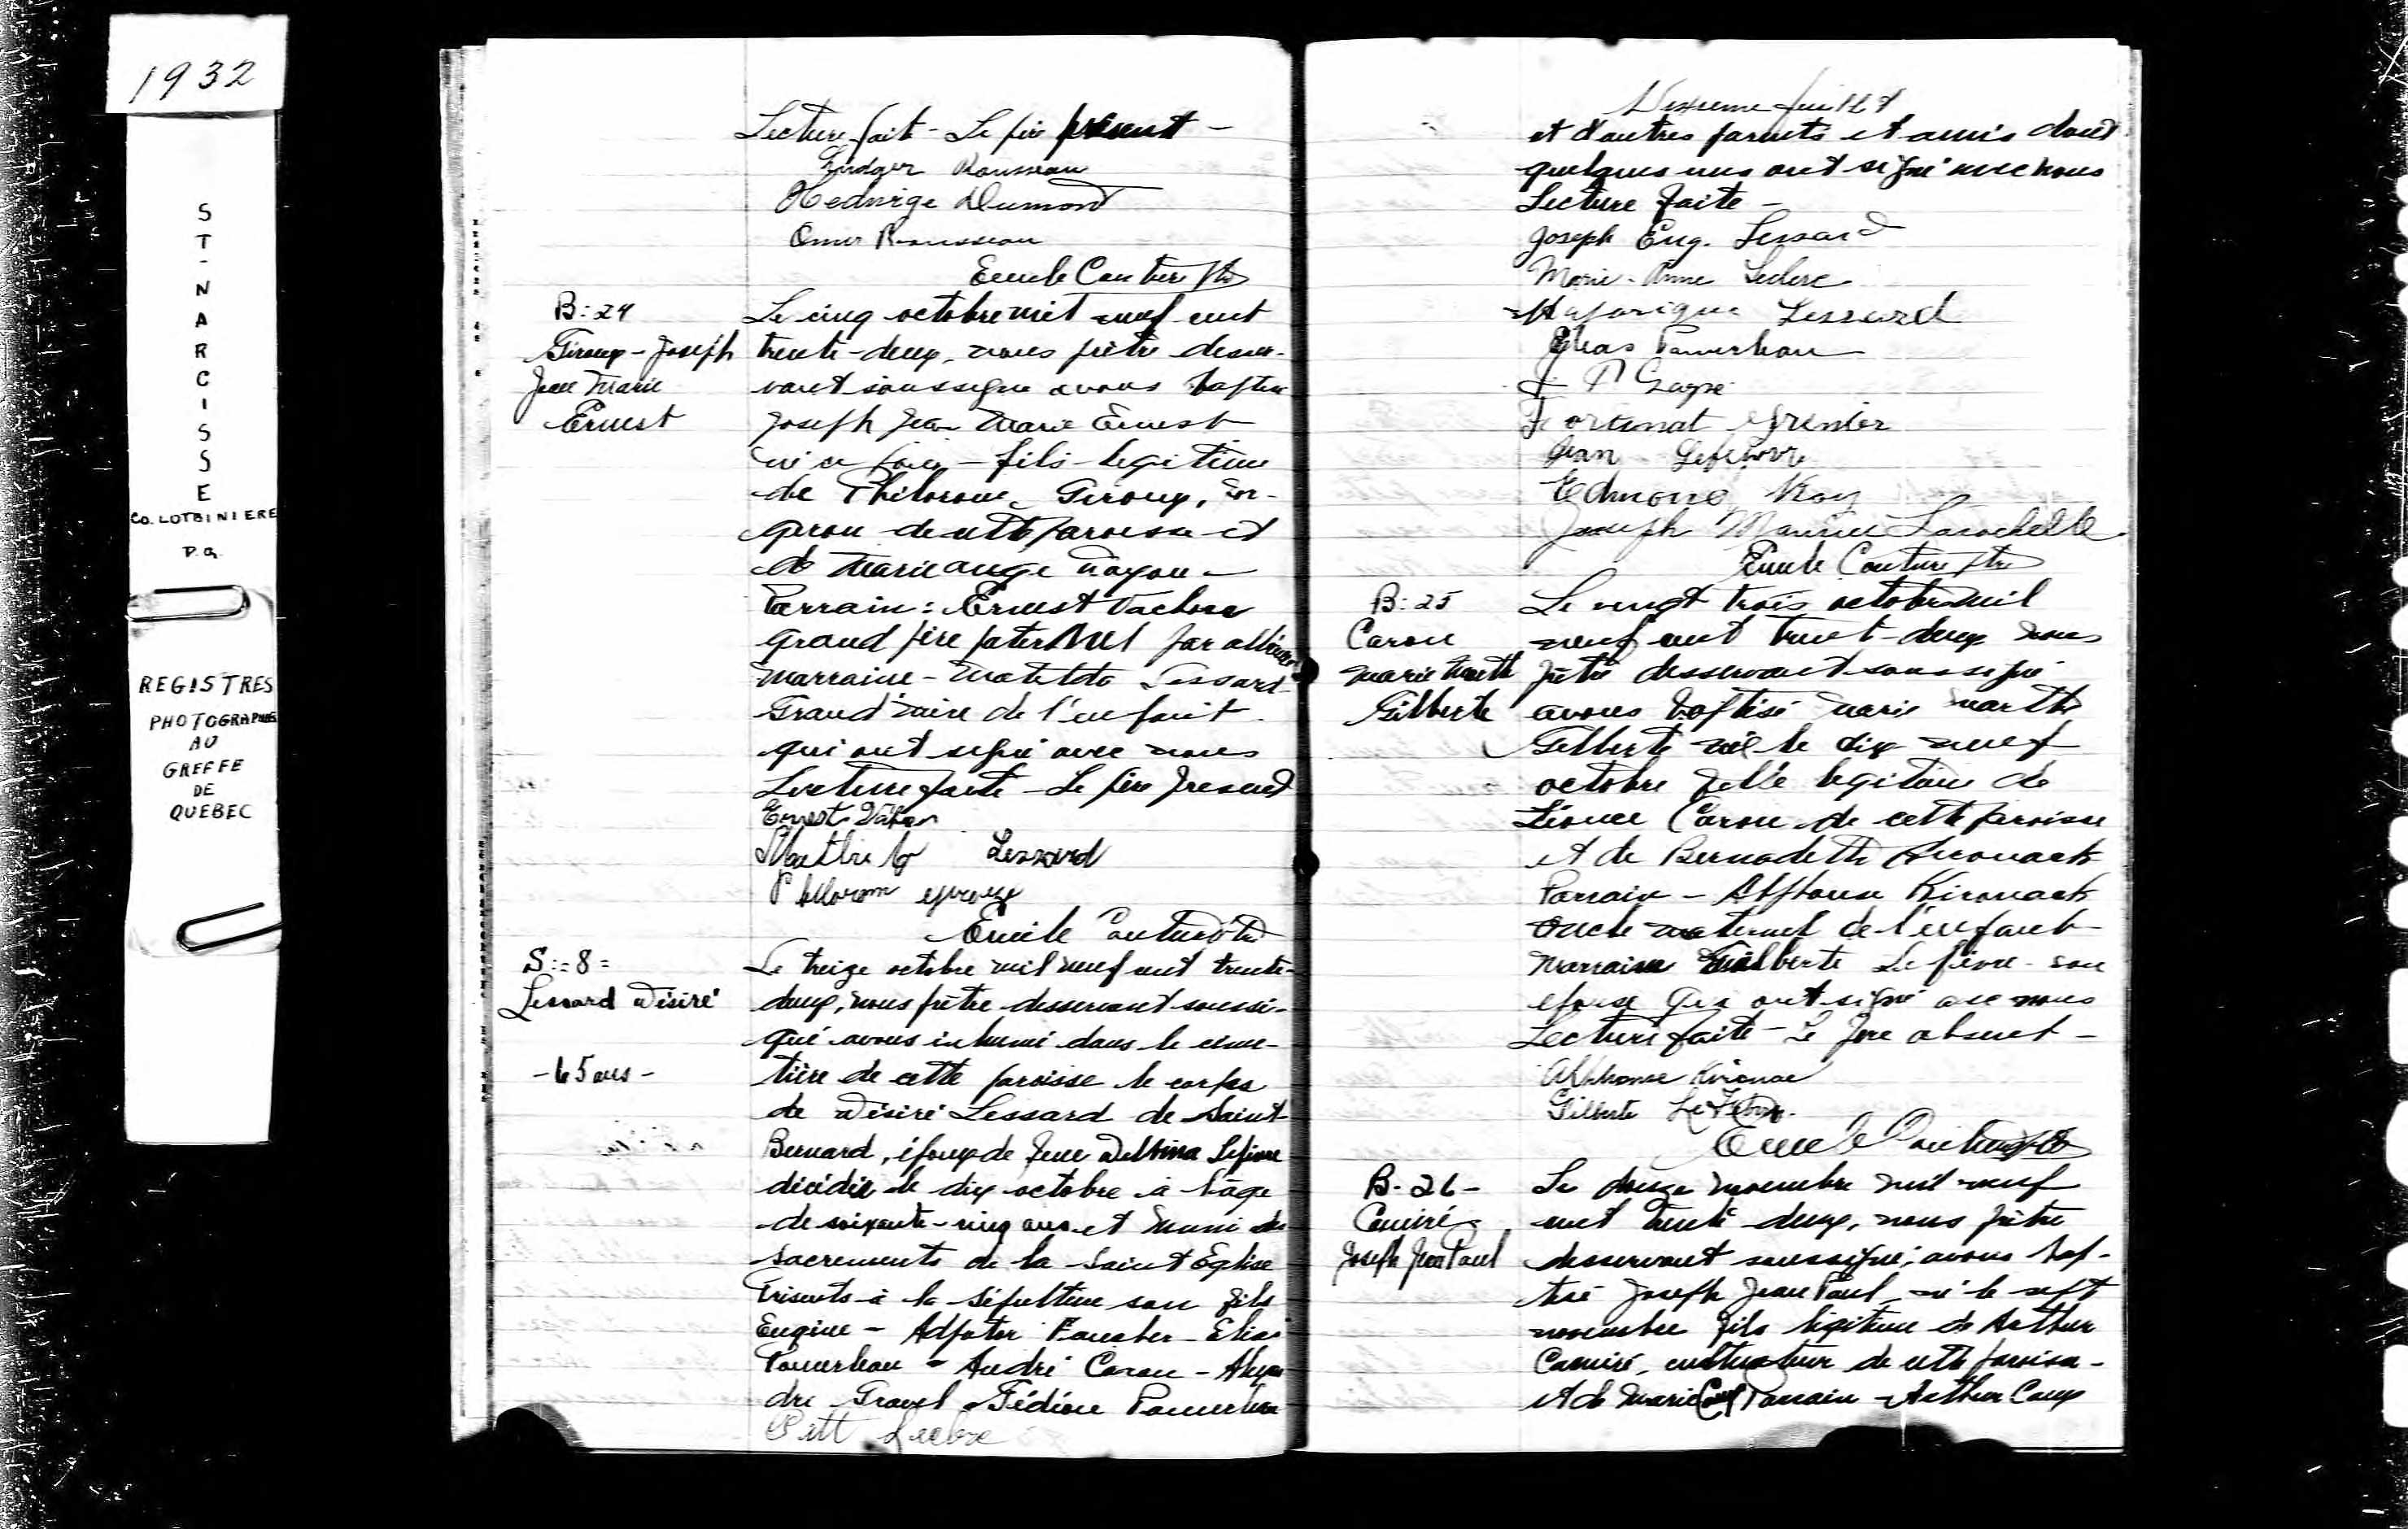 1932
ST-NARCISSE
CO. LOTBINIERE
P.Q.
REGISTRES
PHOTOGRAPHIES
AU
GREFFE
DE
QUEBEC
Lecture faite - Le père présent -
Ludger Rousseau
Hedwige Dumont
Omer Rousseau
Emile Couture Ptre
B: 24
Giroux - Joseph
Jean Marie
Ernest
Le cinq octobre mil neuf cent
trente-deux, nous prêtre desser-
vant soussigné avons baptisé
Joseph Jean Marie Ernest
né ce jour - fils légitime
de Philorome Giroux, for-
geron de cette paroisse et
de Marie ange
Parrain: Ernest Vachon
Grand père paternel par alliance
Marraine - Mathilda Lessard
Grand'mère de l'enfant.
qui ont signé avec nous
Lecture faite - Le père present
Ernest
Lessard
Emile Couture Ptre
S:-8=
Lessard Désiré
- 65 ans -
Le treize octobre mil neuf cent trente-
deux, nous prêtre desservant soussi-
gné avons inhumé dans le cime-
tière de cette paroisse le corps
de Désiré Lessard de Saint
Bernard, époux de feue Delvina
décédé le dix octobre à l'âge
de soixante-cinq ans et muni des
sacrements de la Saint Eglise
Présents à la sépulture son fils
Eugène - Adjutor Faucher - Elias
Pomerleau - André Caron - Alexan
dre Gravel - Fédéore Pomerleau
feuillet
et d'autres parents et amis dont
quelques uns ont signé avec nous
Lecture faite -
Joseph Eug. Lessard
Marie-Anne Leclerc
Lessard
Elias Pomerleau
J P Gagné
Fortunat Grenier
Jean Lefebvre
Edmond Roy
Joseph Larochelle
Emile Couture Ptre
B: 25
Caron
Marie Marthe
Gilberte
Le vingt trois octobre mil
neuf cent trente-deux nous
prêtre desservant soussigné
avons baptisé Marie Marthe
Gilberte née le dix neuf
octobre fille légitime de
Léonce Caron de cette paroisse
et de Bernadette Kirouack
Parrain - Alphonse Kirouack
oncle maternel de l'enfant
Marraine Gilberte Lefièvre son
épouse qui ont signé avec nous
Lecture faite - Le père absent -
Alphonse Kirouac
Gilberte
Emile Couture Ptre
B-26-
Camiré
Joseph Jean Paul
Le novembre mil neuf
cent trente deux, nous prêtre
desservant soussigné, avons bap-
tisé Joseph Jean Paul, né le sept
novembre fils légitime de Arthur
Camiré, cultivateur de cette paroisse -
et de Marie Parrain - Arthur